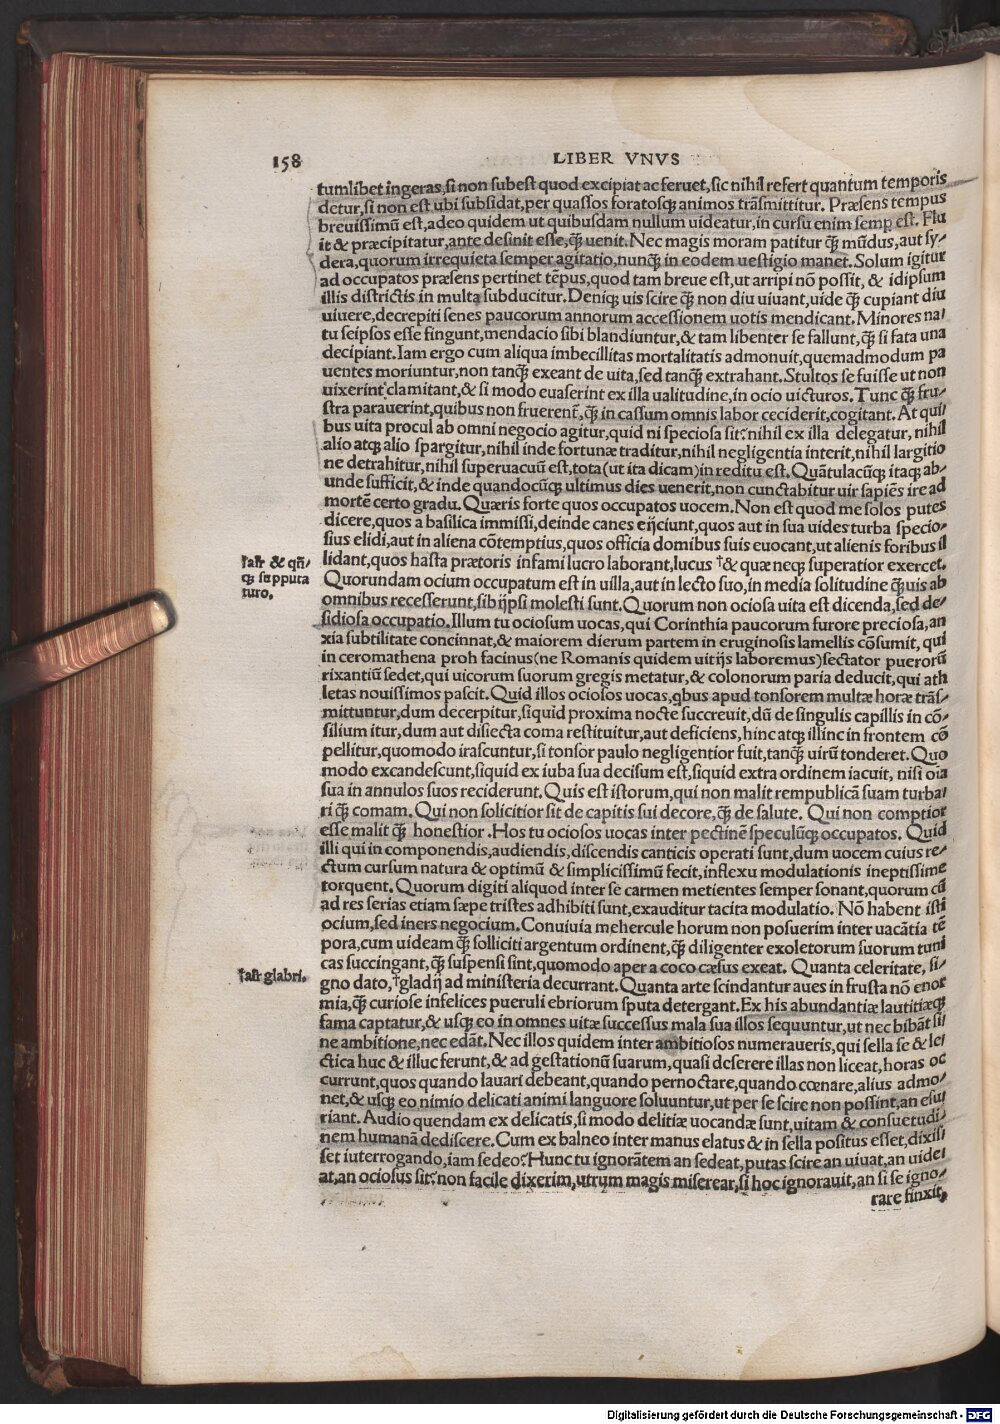 158
LIBER VNVS
tumlibet ingeras, si non subest quod excipiat ac feruet, sic nihil refert quantum temporis
detur, si non est ubi subsidat, per quassos foratosq; animos trãsmittitur. Præsens tempus
breuissimũ est, adeo quidem ut quibusdam nullum uideatur, in cursu enim semp est. Flu
it & præcipitatur, ante desinit esse, q̃; uenit. Nec magis moram patitur q̃; mũdus, aut sy-
dera, quorum irrequieta semper agitatio, nunq̃; in eodem uestigio manet. Solum igitur
ad occupatos præsens pertinet tẽpus, quod tam breue est, ut arripi nõ possit, & idipsum
illis districtis in multa subducitur. Deniq; uis scire q̃; non diu uiuant, uide q̃; cupiant diu
uiuere, decrepiti senes paucorum annorum accessionem uotis mendicant. Minores na/
tu seipsos esse fingunt, mendacio sibi blandiuntur, & tam libenter se fallunt, q̃; si fata una
decipiant. Iam ergo cum aliqua imbecillitas mortalitatis admonuit, quemadmodum pa
uentes moriuntur, non tanq̃; exeant de uita, sed tanq̃; extrahant. Stultos se fuisse ut non
uixerint clamitant, & si modo euaserint ex illa ualitudine, in ocio uicturos. Tunc q̃; fru-
stra parauerint, quibus non fruerent̃, q̃; in cassum omnis labor ceciderit, cogitant. At qui/
bus uita procul ab omni negocio agitur, quid ni speciosa sit? nihil ex illa delegatur, nihil
alio atq; alio spargitur, nihil inde fortunæ traditur, nihil negligentia interit, nihil largitio
ne detrahitur, nihil superuacuũ est, tota (ut ita dicam) in reditu est. Quãtulacũq; itaq; ab-
unde sufficit, & inde quandocũq; ultimus dies uenerit, non cunctabitur uir sapiẽs ire ad
mortẽ certo gradu. Quæris forte quos occupatos uocem. Non est quod me solos putes
dicere, quos a basilica immissi, deinde canes eijciunt, quos aut in sua uides turba specio-
sius elidi, aut in aliena cõtemptius, quos officia domibus suis euocant, ut alienis foribus il
lidant, quos hasta prætoris infami lucro laborant, lucus †& quæ neq; superatior exercet.
Quorundam ocium occupatum est in uilla, aut in lecto suo, in media solitudine q̃;uis ab
omnibus recesserunt, sibijpsi molesti sunt. Quorum non ociosa uita est dicenda, sed de-
sidiosa occupatio. Illum tu ociosum uocas, qui Corinthia paucorum furore preciosa, an
xia subtilitate concinnat, & maiorem dierum partem in eruginosis lamellis cõsumit, qui
in ceromathena proh facinus (ne Romanis quidem uitijs laboremus) sectator puerorũ
rixantiũ sedet, qui uicorum suorum gregis metatur, & colonorum paria deducit, qui ath
letas nouissimos pascit. Quid illos ociosos uocas, qbus apud tonsorem multæ horæ trãs-
mittuntur, dum decerpitur, siquid proxima nocte succreuit, dũ de singulis capillis in cõ-
silium itur, dum aut disiecta coma restituitur, aut deficiens, hinc atq; illinc in frontem cõ
pellitur, quomodo irascuntur, si tonsor paulo negligentior fuit, tanq̃; uirũ tonderet. Quo
modo excandescunt, siquid ex iuba sua decisum est, siquid extra ordinem iacuit, nisi oĩa
sua in annulos suos reciderunt. Quis est istorum, qui non malit rempublicã suam turba/
ri q̃; comam. Qui non solicitior sit de capitis sui decore, q̃; de salute. Qui non comptior
esse malit q̃; honestior. Hos tu ociosos uocas inter pectinẽ speculũq; occupatos. Quid
illi qui in componendis, audiendis, discendis canticis operati sunt, dum uocem cuius re-
ctum cursum natura & optimũ & simplicissimũ fecit, inflexu modulationis ineptissime
torquent. Quorum digiti aliquod inter se carmen metientes semper sonant, quorum cũ
ad res serias etiam sæpe tristes adhibiti sunt, exauditur tacita modulatio. Nõ habent isti
ocium, sed iners negocium. Conuiuia mehercule horum non posuerim inter uacãtia tẽ
pora, cum uideam q̃; solliciti argentum ordinent, q̃; diligenter exoletorum suorum tuni
cas succingant, q̃; suspensi sint, quomodo aper a coco cæsus exeat. Quanta celeritate, si-
gno dato, †gladij ad ministeria decurrant. Quanta arte scindantur aues in frusta nõ enor
mia, q̃; curiose infelices pueruli ebriorum sputa detergant. Ex his abundantiæ lautitiæq;
fama captatur, & usq; eo in omnes uitæ successus mala sua illos sequuntur, ut nec bibãt si/
ne ambitione, nec edãt. Nec illos quidem inter ambitiosos numeraueris, qui sella se & le/
ctica huc & illuc ferunt, & ad gestationũ suarum, quasi deserere illas non liceat, horas oc
currunt, quos quando lauari debeant, quando pernoctare, quando cœnare, alius admo/
net, & usq; eo nimio delicati animi languore soluuntur, ut per se scire non possint, an esu/
riant. Audio quendam ex delicatis, si modo delitiæ uocandæ sunt, uitam & consuetudi/
nem humanã dediscere. Cum ex balneo inter manus elatus & in sella positus esset, dixis/
set iuterrogando, iam sedeo? Hunc tu ignorãtem an sedeat, putas scire an uiuat, an uide/
at, an ociosus sit? non facile dixerim, utrum magis miserear, si hoc ignorauit, an si se igno-
rare finxit,
& qñ-
q; sepputa
turo.
glabri.
Digitalisierung gefördert durch die Deutsche Forschungsgemeinschaft - DFG